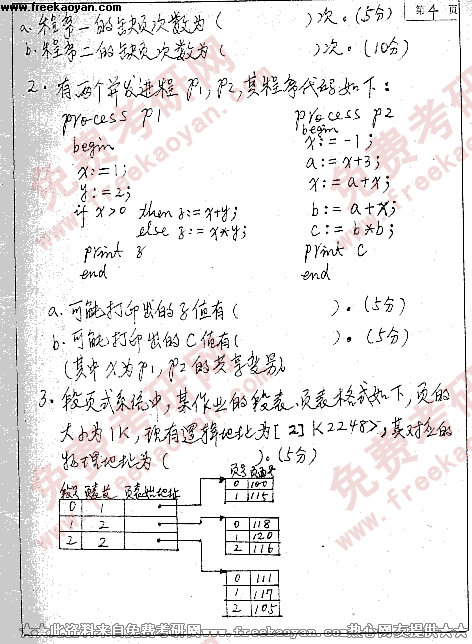 www.freekaoyan.com
第 4 页
a. 程序一的缺页次数为( )次。(5分)
b. 程序二的缺页次数为( )次。(10分)
2. 有两个并发进程 P1, P2, 其程序代码如下:
process P1
begin
x:=1;
y:=2;
if x>0 then z:=x+y;
else z:=x*y;
print z
end
process P2
begin
x:=-1;
a:=x+3;
x:=a+x;
b:=a+x;
c:=b*b;
print c
end
a. 可能打印出的z值有( )。(5分)
b. 可能打印出的c值有( )。(5分)
(其中X为P1, P2的共享变量)
3. 段页式系统中, 某作业的段表、页表格式如下, 页的
大小为1K, 现有逻辑地址为[2]K2248>, 其对应的
物理地址为( )。(5分)
段号 页表长 页表始地址
0 1
1 2
2 2
页号
0 100
1 115
0 118
1 120
2 116
0 111
1 117
2 105
免费考研网
www.freekaoyan.com
★☆此资料来自免费考研网 www.freekaoyan.com 热心网友提供☆★